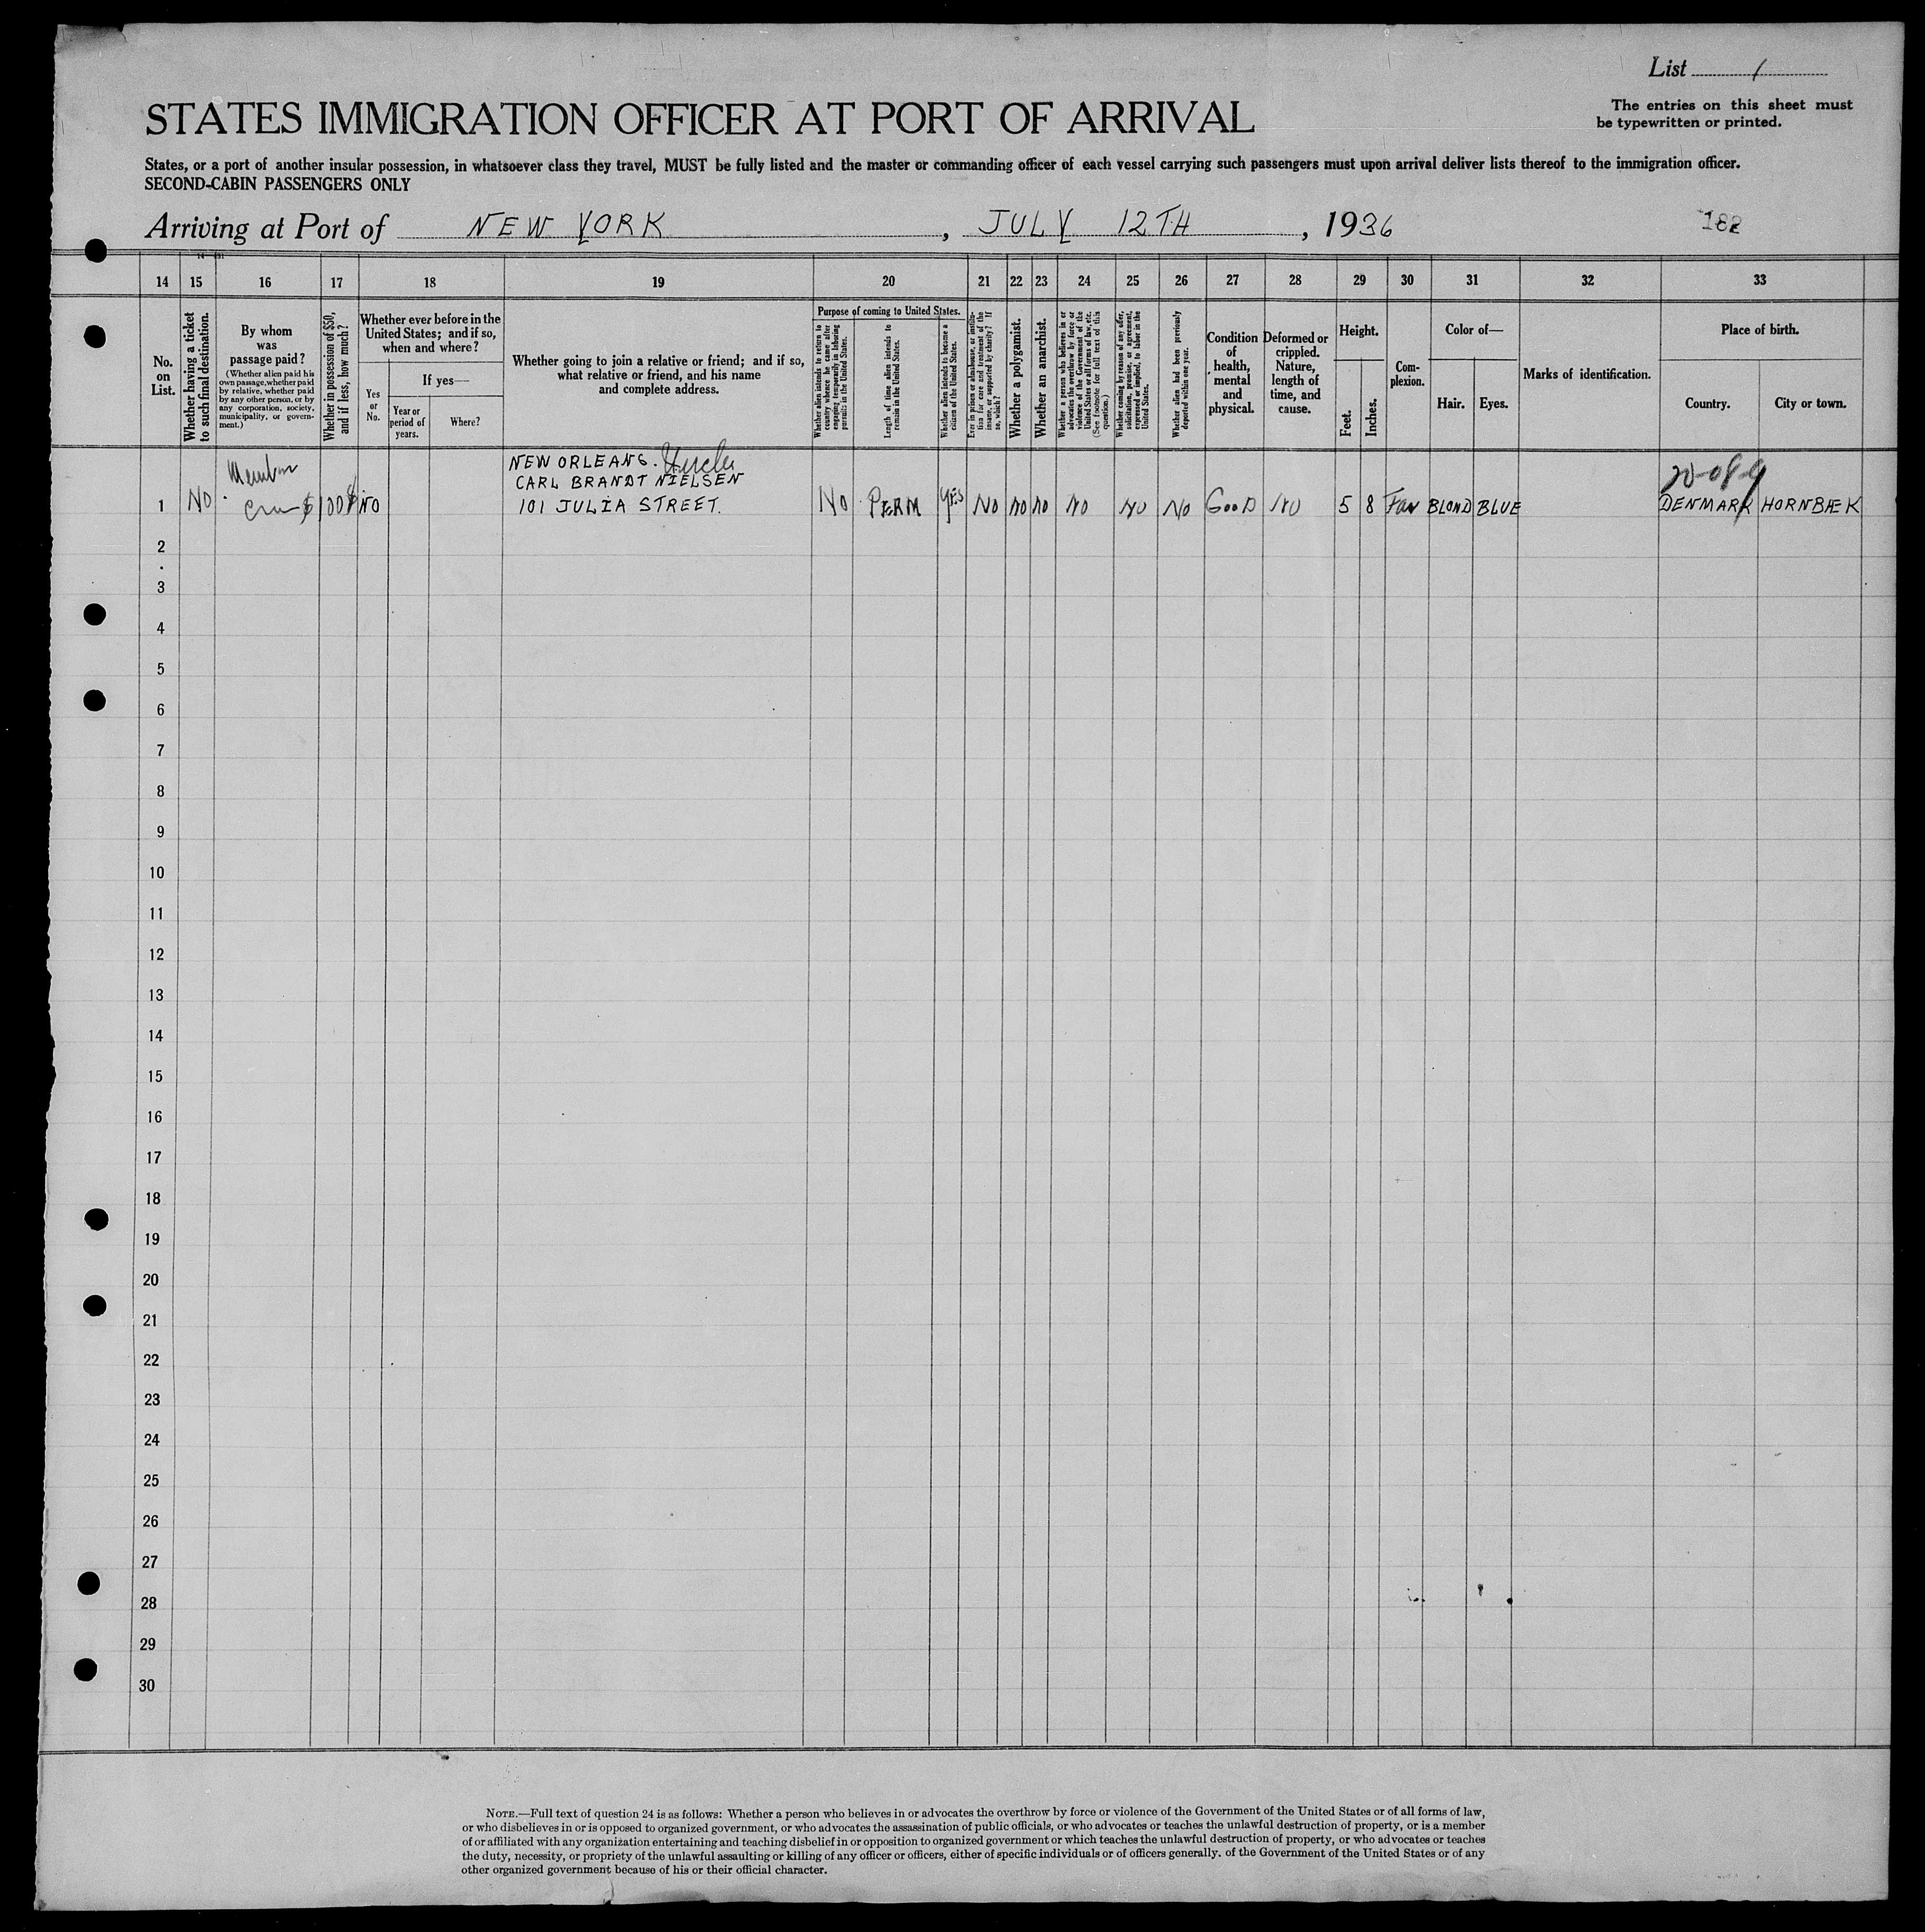 List 1
The entries on this sheet must
be typewritten or printed.
STATES IMMIGRATION OFFICER AT PORT OF ARRIVAL
States, or a port of another insular possession, in whatsoever class they travel, MUST be fully listed and the master or commanding officer of each vessel carrying such passengers must upon arrival deliver lists thereof to the immigration officer.
SECOND-CABIN PASSENGERS ONLY
Arriving at Port of NEW YORK, JULY 12TH, 1936
182
14 15 16 17 18 19 20 21 22 23 24 25 26 27 28 29 30 31 32 33
No. on List.
Whether having a ticket to such final destination.
By whom was passage paid?
(Whether alien paid his own passage, whether paid by relative, whether paid by any other person, or by any corporation, society, municipality, or government.)
Whether in possession of $50, and if less, how much?
Whether ever before in the United States; and if so, when and where?
Yes or No.
If yes—
Year or period of years.
Where?
Whether going to join a relative or friend; and if so, what relative or friend, and his name and complete address.
Purpose of coming to United States.
Whether alien intends to return to country whence he came after engaging temporarily in laboring pursuits in the United States.
Length of time alien intends to remain in the United States.
Whether alien intends to become a citizen of the United States.
Ever in prison or almshouse, or institution for care and treatment of the insane, or supported by charity? If so, which?
Whether a polygamist.
Whether an anarchist.
Whether a person who believes in or advocates the overthrow by force or violence of the Government of the United States or all forms of law, etc. (See footnote for full text of this question.)
Whether coming by reason of any offer, solicitation, promise, or agreement, expressed or implied, to labor in the United States.
Whether alien had been previously deported within one year.
Condition of health, mental and physical.
Deformed or crippled. Nature, length of time, and cause.
Height.
Feet.
Inches.
Complexion.
Color of—
Hair.
Eyes.
Marks of identification.
Place of birth.
Country.
City or town.
NEW ORLEANS. Uncle
CARL BRANDT NIELSEN
101 JULIA STREET.
Member
Crew
20-08-9
1 NO $100 NO NO PERM YES NO NO NO NO NO NO GOOD NO 5 8 Fair BLOND BLUE DENMARK HORNBÆK
2
3
4
5
6
7
8
9
10
11
12
13
14
15
16
17
18
19
20
21
22
23
24
25
26
27
28
29
30
NOTE.—Full text of question 24 is as follows: Whether a person who believes in or advocates the overthrow by force or violence of the Government of the United States or of all forms of law,
or who disbelieves in or is opposed to organized government, or who advocates the assassination of public officials, or who advocates or teaches the unlawful destruction of property, or is a member
of or affiliated with any organization entertaining and teaching disbelief in or opposition to organized government or which teaches the unlawful destruction of property, or who advocates or teaches
the duty, necessity, or propriety of the unlawful assaulting or killing of any officer or officers, either of specific individuals or of officers generally, of the Government of the United States or of any
other organized government because of his or their official character.